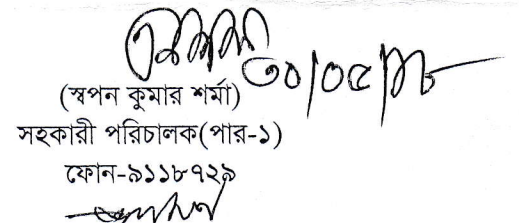 ৩০/০৫/১৮
(স্বপন কুমার শর্মা)
সহকারী পরিচালক(পার-১)
ফোন-৯১১৮৭২৯